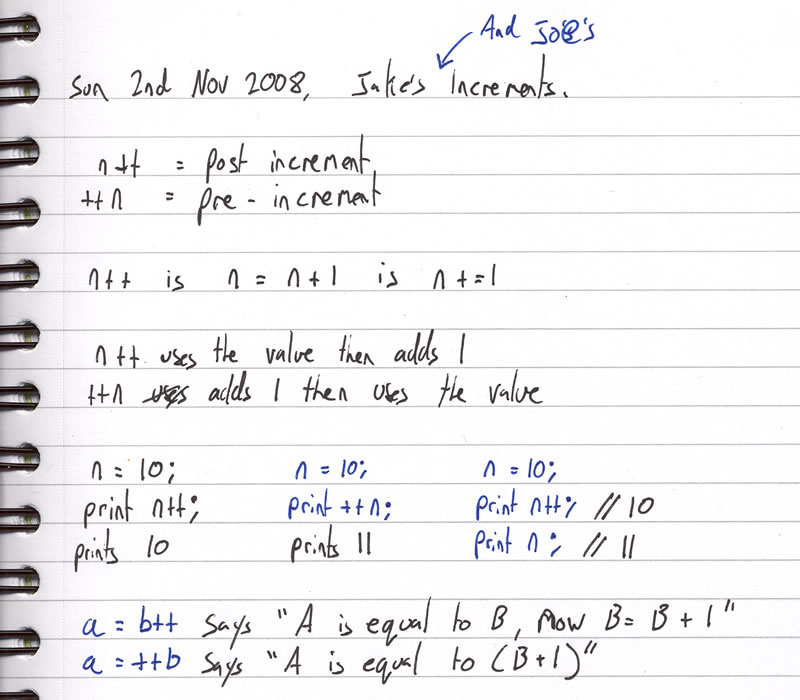 And Joe's
Sun 2nd Nov 2008, Jake's Increments.
n++ = post increment
++n = pre-increment
n++ is n = n+1 is n+=1
n++ uses the value then adds 1
++n uses adds 1 then uses the value
n = 10; n = 10; n = 10;
print n++; print ++n; print n++; // 10
prints 10 prints 11 print n; // 11
a = b++ says "A is equal to B, now B = B + 1"
a = ++b says "A is equal to (B+1)"